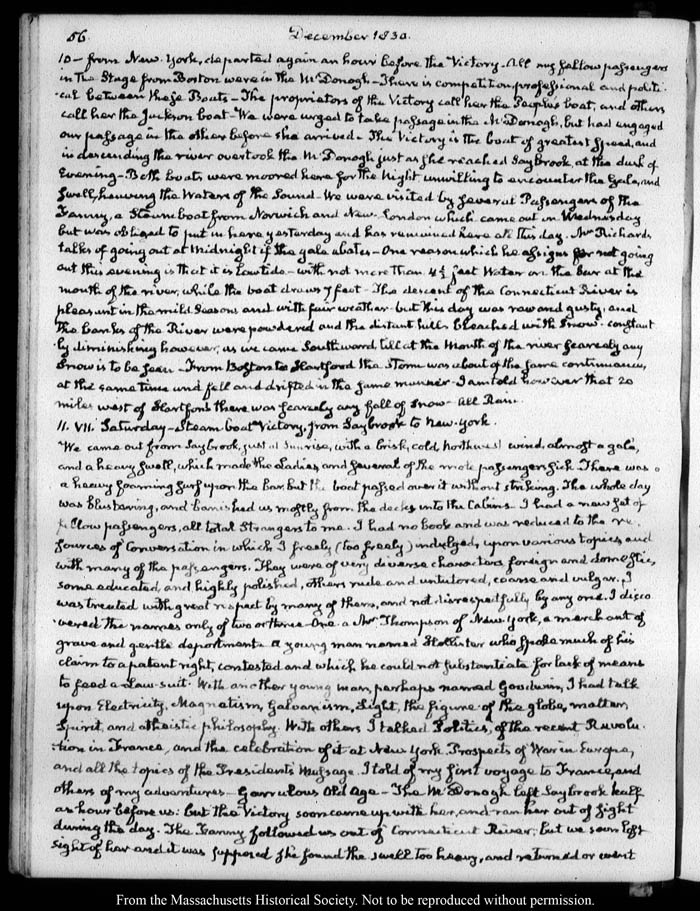 56.
December 1830.
10 – from New-York, departed again an hour before the Victory – All my fellow passengers
in the Stage from Boston were in the McDonogh – There is competition professional and politi-
-cal between these Boats – The proprietors of the Victory call her the People's boat, and others
call her the Jackson boat – We were urged to take passage in the McDonogh, but had engaged
our passage in the other before she arrived – The Victory is the boat of greatest Speed, and
in descending the river overtook the McDonogh just as she reached Saybrook, at the dusk of
Evening – Both boats were moored here for the Night unwilling to encounter the Gale, and
Swell, heaving the Waters of the Sound – We were visited by several Passengers of the
Fanny, a Steam boat from Norwich and New-London which came out on Wednesday
but was obliged to put in here yesterday and has remained here all this day. Mr Richards
talks of going out at Midnight if the gale abates – One reason which he assigns for not going
out this evening is that it is low tide – with not more than 4½ feet Water on the bar at the
mouth of the river, while the boat draws 7 feet – The descent of the Connecticut River is
pleasant in the mild Seasons and with fair weather – but this day was raw and gusty, and
the banks of the River were powdered and the distant hills bleached with Snow – constant
-ly diminishing however, as we came Southward, till at the Mouth of the river scarcely any
Snow is to be seen – From Boston to Hartford the Storm was about of the same continuance,
at the same time and fell and drifted in the same manner – I am told however that 20
miles west of Hartford there was scarcely any fall of Snow – All Rain.
11. VII. Saturday – Steam-boat Victory, from Saybrook to New-York.
We came out from Saybrook, just at Sunrise, with a brisk, cold, Northwest wind, almost a gale,
and a heavy Swell, which made the Ladies and several of the male passengers sick. There was
a heavy foaming surf upon the bar, but the boat passed over it without striking. The whole day
was blustering, and banished us mostly from the decks into the Cabins – I had a new set of
fellow passengers, all total Strangers to me. I had no book and was reduced to the re-
sources of Conversation in which I freely (too freely) indulged, upon various topics and
with many of the passengers. They were of very diverse characters, foreign and domestic,
some educated, and highly polished, others rude and untutored, coarse and vulgar. I
was treated with great respect by many of them, and not disrespectfully by any one. I disco
-vered the names only of two or three – One a Mr Thompson of New-York, a merchant of
grave and gentle deportment – a young man named Hollister who spoke much of his
claim to a patent right, contested and which he could not substantiate for lack of means
to feed a Law-suit. With another young man, perhaps named Goodwin, I had talk
upon Electricity, Magnetism, Galvanism, Light, the figure of the globe, matter,
Spirit, and atheistic philosophy. With others I talked Politics, of the recent Revolu-
-tion in France, and the celebration of it at New York. Prospects of War in Europe,
and all the topics of the President's Message. I told of my first voyage to France, and
others of my adventures – Garrulous Old Age – The McDonogh left Saybrook half
an hour before us: but the Victory soon came up with her, and ran her out of sight
during the day. The Fanny followed us out of Connecticut River; but we soon lost
sight of her and it was supposed she found the swell too heavy, and returned or went
From the Massachusetts Historical Society. Not to be reproduced without permission.